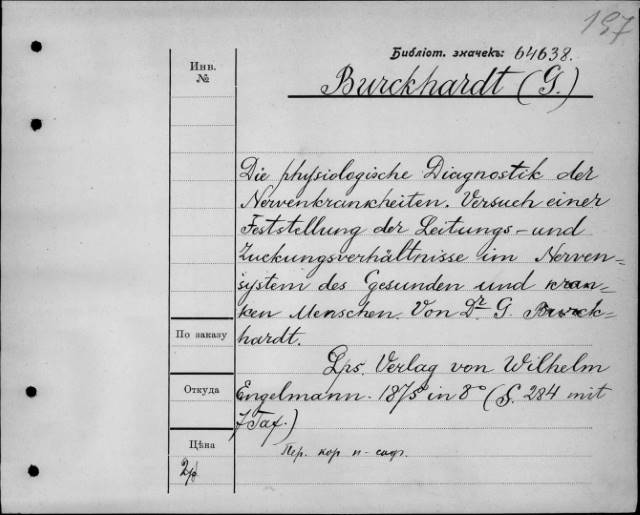 157
Библіот. значекъ: 64638.
Burckhardt (G.)
Инв.
№
Die physiologische Diagnostik der
Nervenkrankheiten. Versuch einer
Feststellung der Leitungs- und
Zuckungsverhältnisse im Nerven-
system des Gesunden und kran-
ken Menschen. Von Dr. G. Burck-
hardt.
По заказу
Lps. Verlag von Wilhelm
Откуда
Engelmann. 1875 in 8° (S. 284 mit
7 Taf.)
Цѣна
Пер. кор и